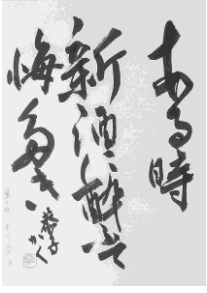 ある時
新酒に酔て
悔多き
恭子かく